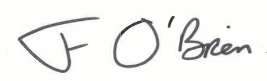 J O'Brien